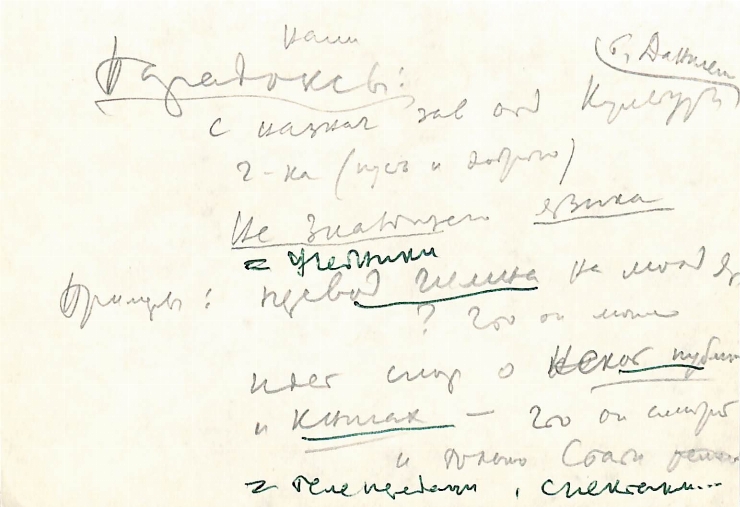 наши
Парадоксы:
с назнач зав отд Культуры
ч-ка (пусть и доброго)
Не знающего языка
= Учебники
Примеры: перевод Гимна на молд яз
? Что он может
идет спор о
и книгах — что он смотрит
и только
= Телепередачи, спектакли...